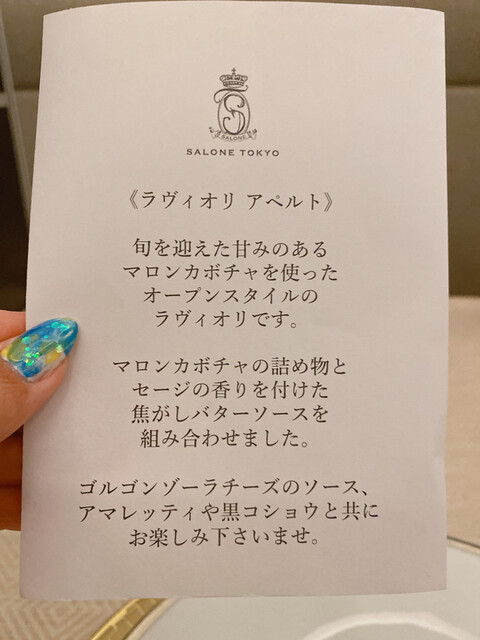 SALONE
SALONE TOKYO
《ラヴィオリ アペルト》
旬を迎えた甘みのある
マロンカボチャを使った
オープンスタイルの
ラヴィオリです。
マロンカボチャの詰め物と
セージの香りを付けた
焦がしバターソースを
組み合わせました。
ゴルゴンゾーラチーズのソース、
アマレッティや黒コショウと共に
お楽しみ下さいませ。